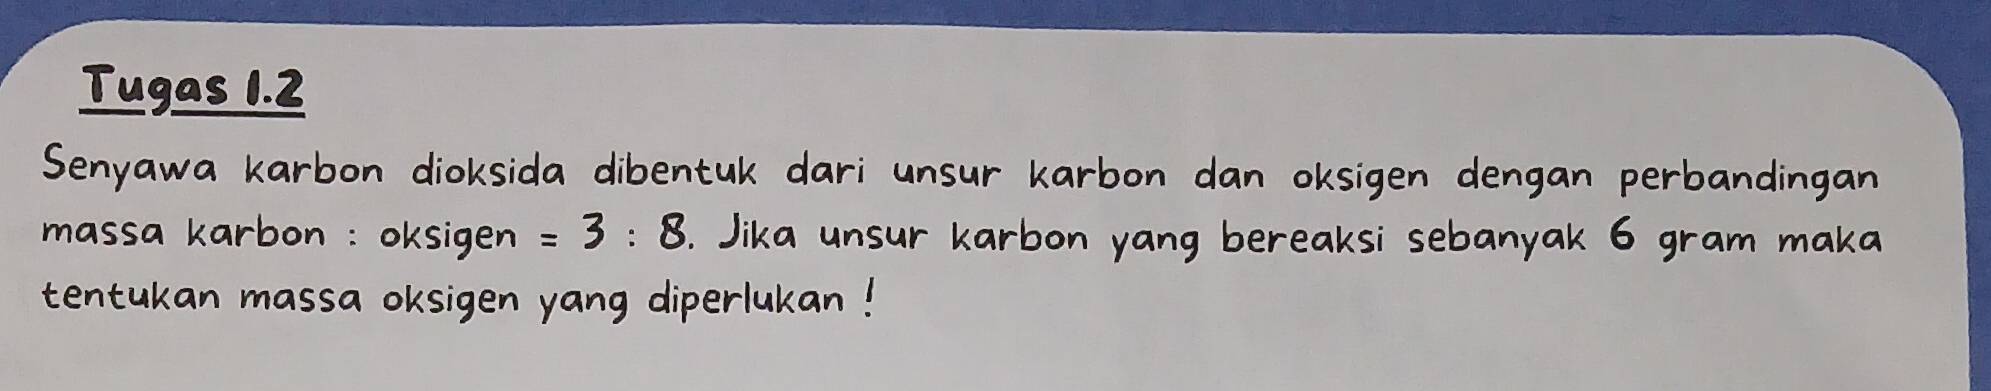 Tugas 1.2
Senyawa karbon dioksida dibentuk dari unsur karbon dan oksigen dengan perbandingan
massa karbon : oksigen = 3 : 8. Jika unsur karbon yang bereaksi sebanyak 6 gram maka
tentukan massa oksigen yang diperlukan !